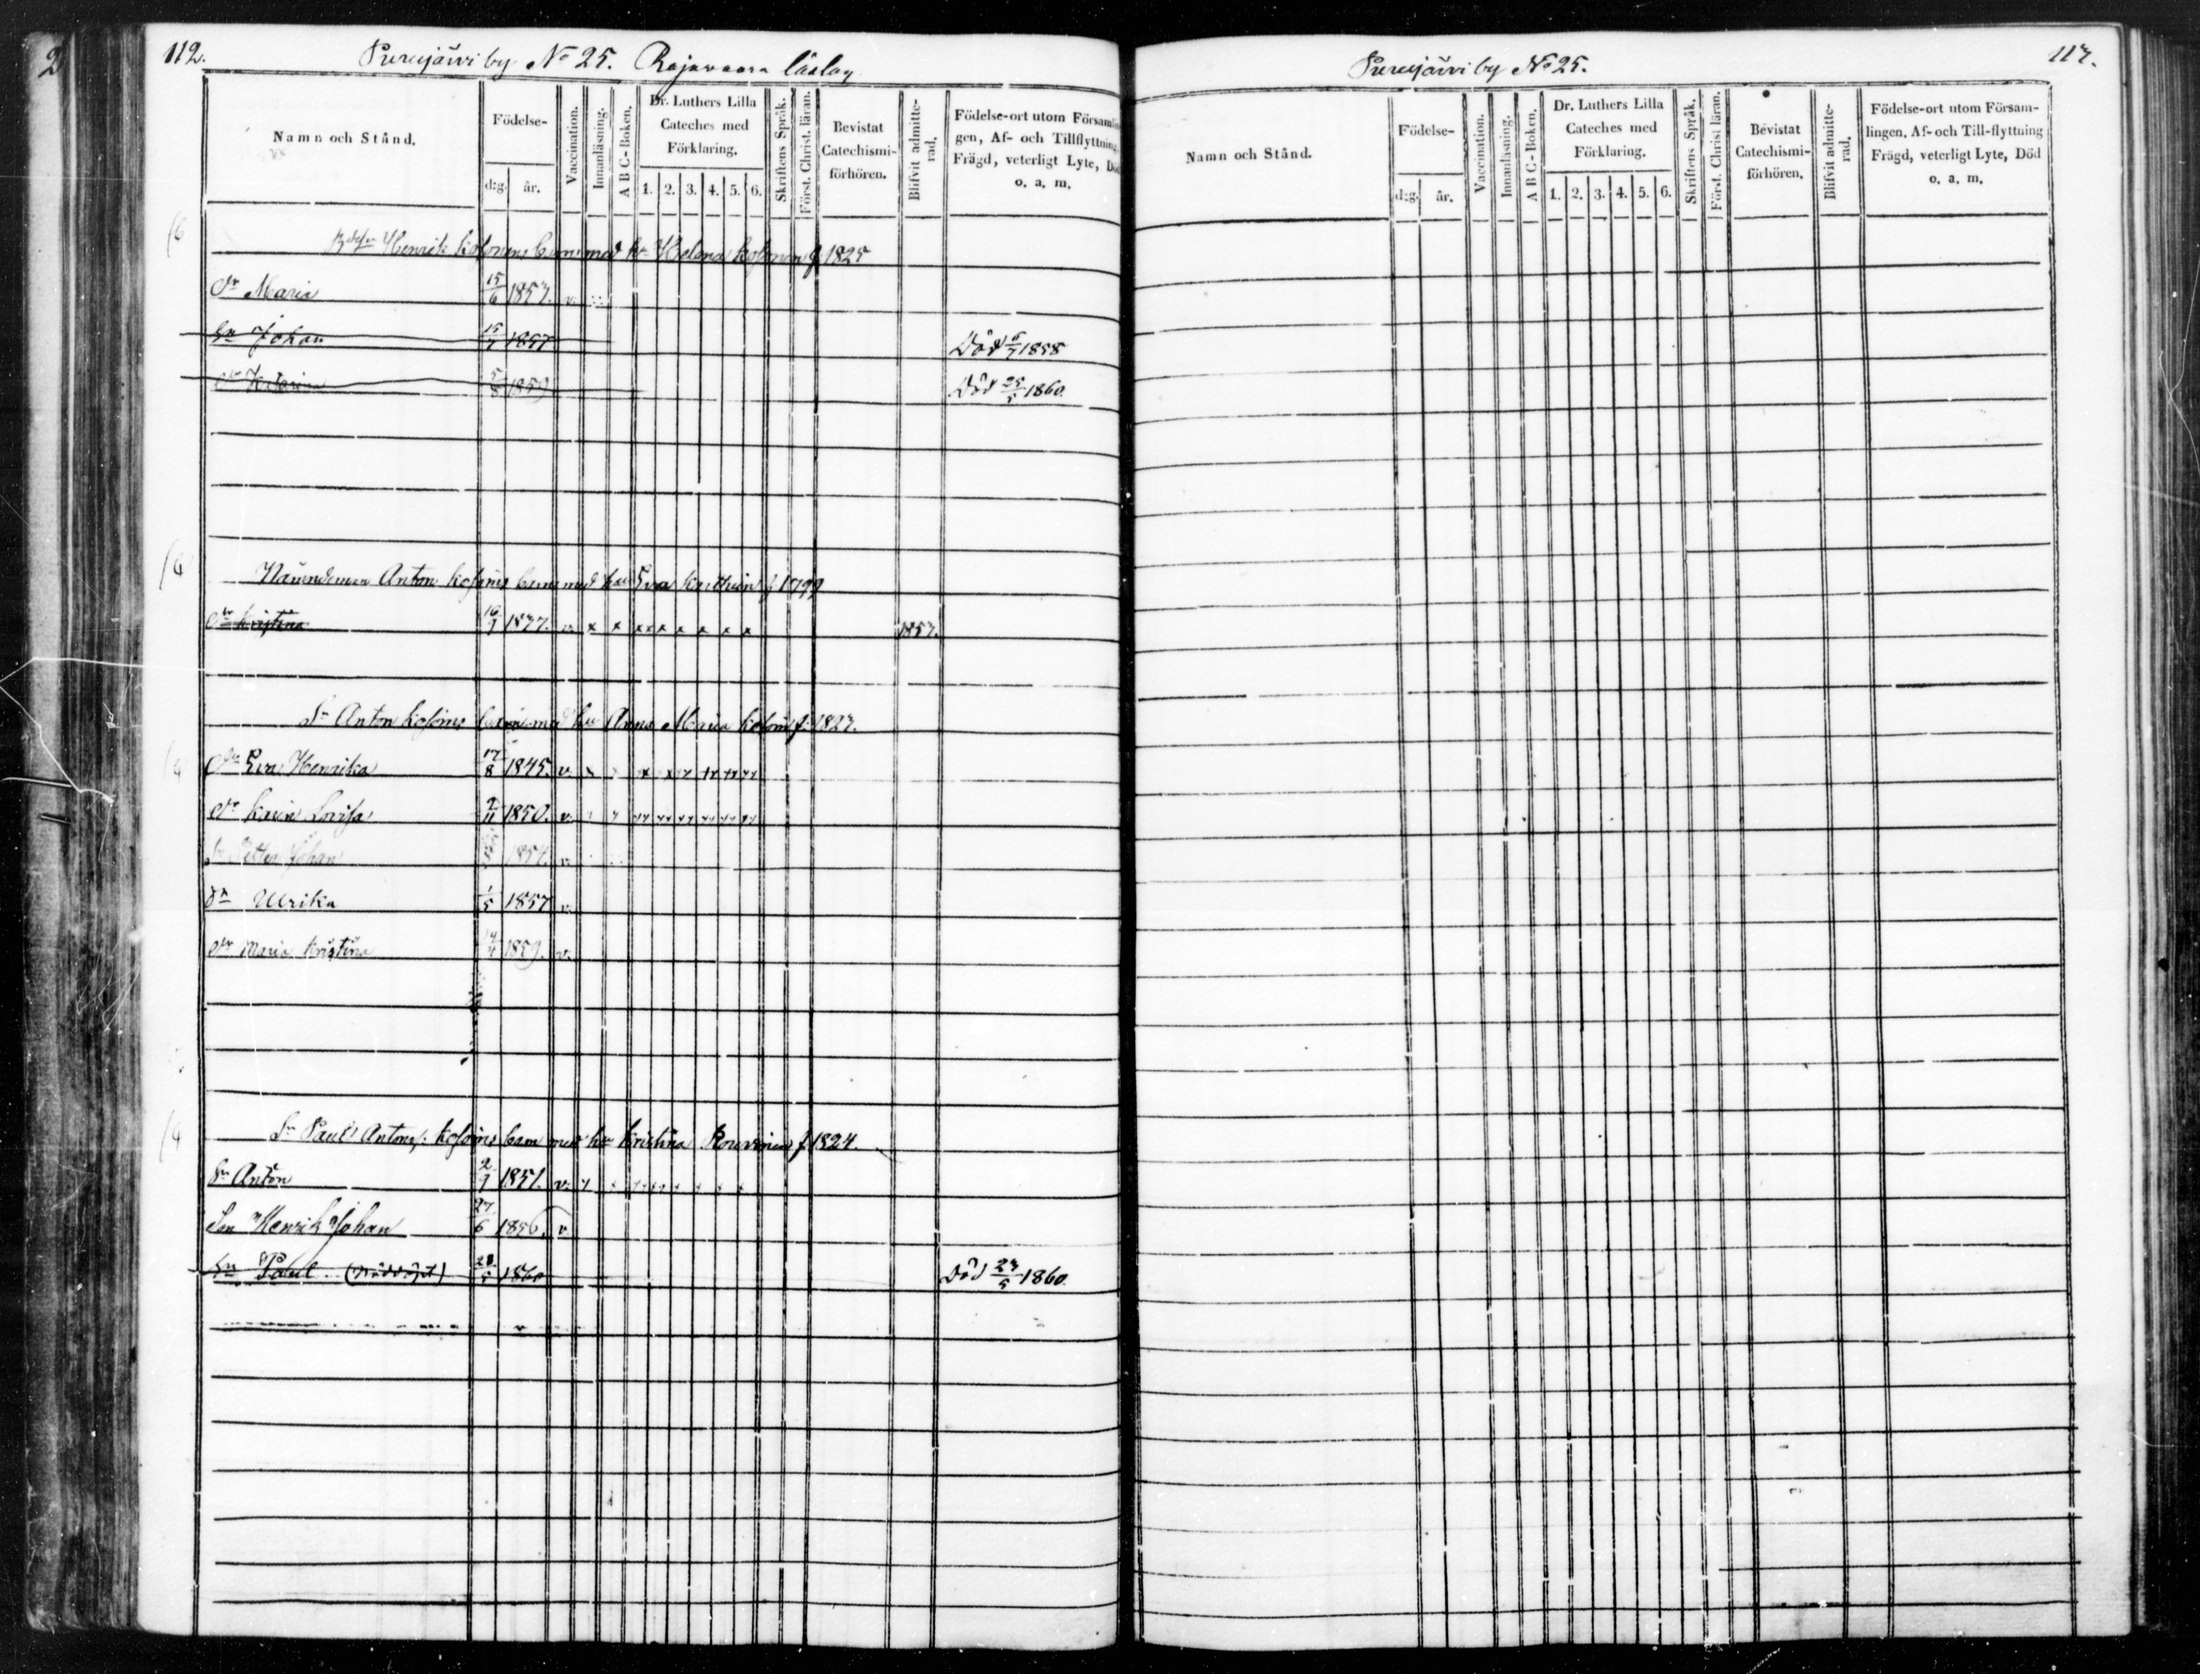 112.
Purujärvi by No 25. Rajavaara läslag
Namn och Stånd.
Födelse-
d:g. år.
Vaccination.
Innanläsning.
A B C-Boken.
Dr. Luthers Lilla
Cateches med
Förklaring.
1. 2. 3. 4. 5. 6.
Skriftens Språk.
Först. Christ. läran.
Bevistat
Catechismi-
förhören.
Blifvit admitte-
rad.
Födelse-ort utom Försam
gen, Af- och Tillflyttning
Frägd, veterligt Lyte, Död
o. a. m.
Henrik Kosonens barn med hu Helena Kosonen f 1825
Dr Maria 15/6 1853. v.
Sn Johan 1857 Död 1858
Dr Katarina 5/8 1859 Död 25/5 1860.
Nämndeman Anton Kosoins barn med hu Eva Karthuin f 1799
Dr Kristina 1837. v. x x xx x x x x x 1857.
Sn Anton Kosoins barn med hu Anna Maria f. 1823.
Dr Eva Henrika 17/8 1845. v.
Dr Karin Lovisa 9/11 1850. v.
Sn Petter Johan 1854. v.
Dr Ulrika 1/5 1857 v.
Dr Maria Kristina 1859. v.
Sn Paul Antons: Kosoins barn med hu Kristina Rouvinen f 1824.
Sn Anton 2/9 1851. v.
Son Henrik Johan 27/6 1856. v.
Sn Paul (Nöddöpt) 23/5 1860 Död 23/5 1860.
117.
Purujärvi by No 25.
Namn och Stånd.
Födelse-
d:g. år.
Vaccination.
Innanläsning.
A B C-Boken.
Dr. Luthers Lilla
Cateches med
Förklaring.
1. 2. 3. 4. 5. 6.
Skriftens Språk.
Först. Christ läran.
Bevistat
Catechismi-
förhören.
Blifvit admitte-
rad.
Födelse-ort utom Försam-
lingen, Af- och Till-flyttning
Frägd, veterligt Lyte, Död
o. a. m.